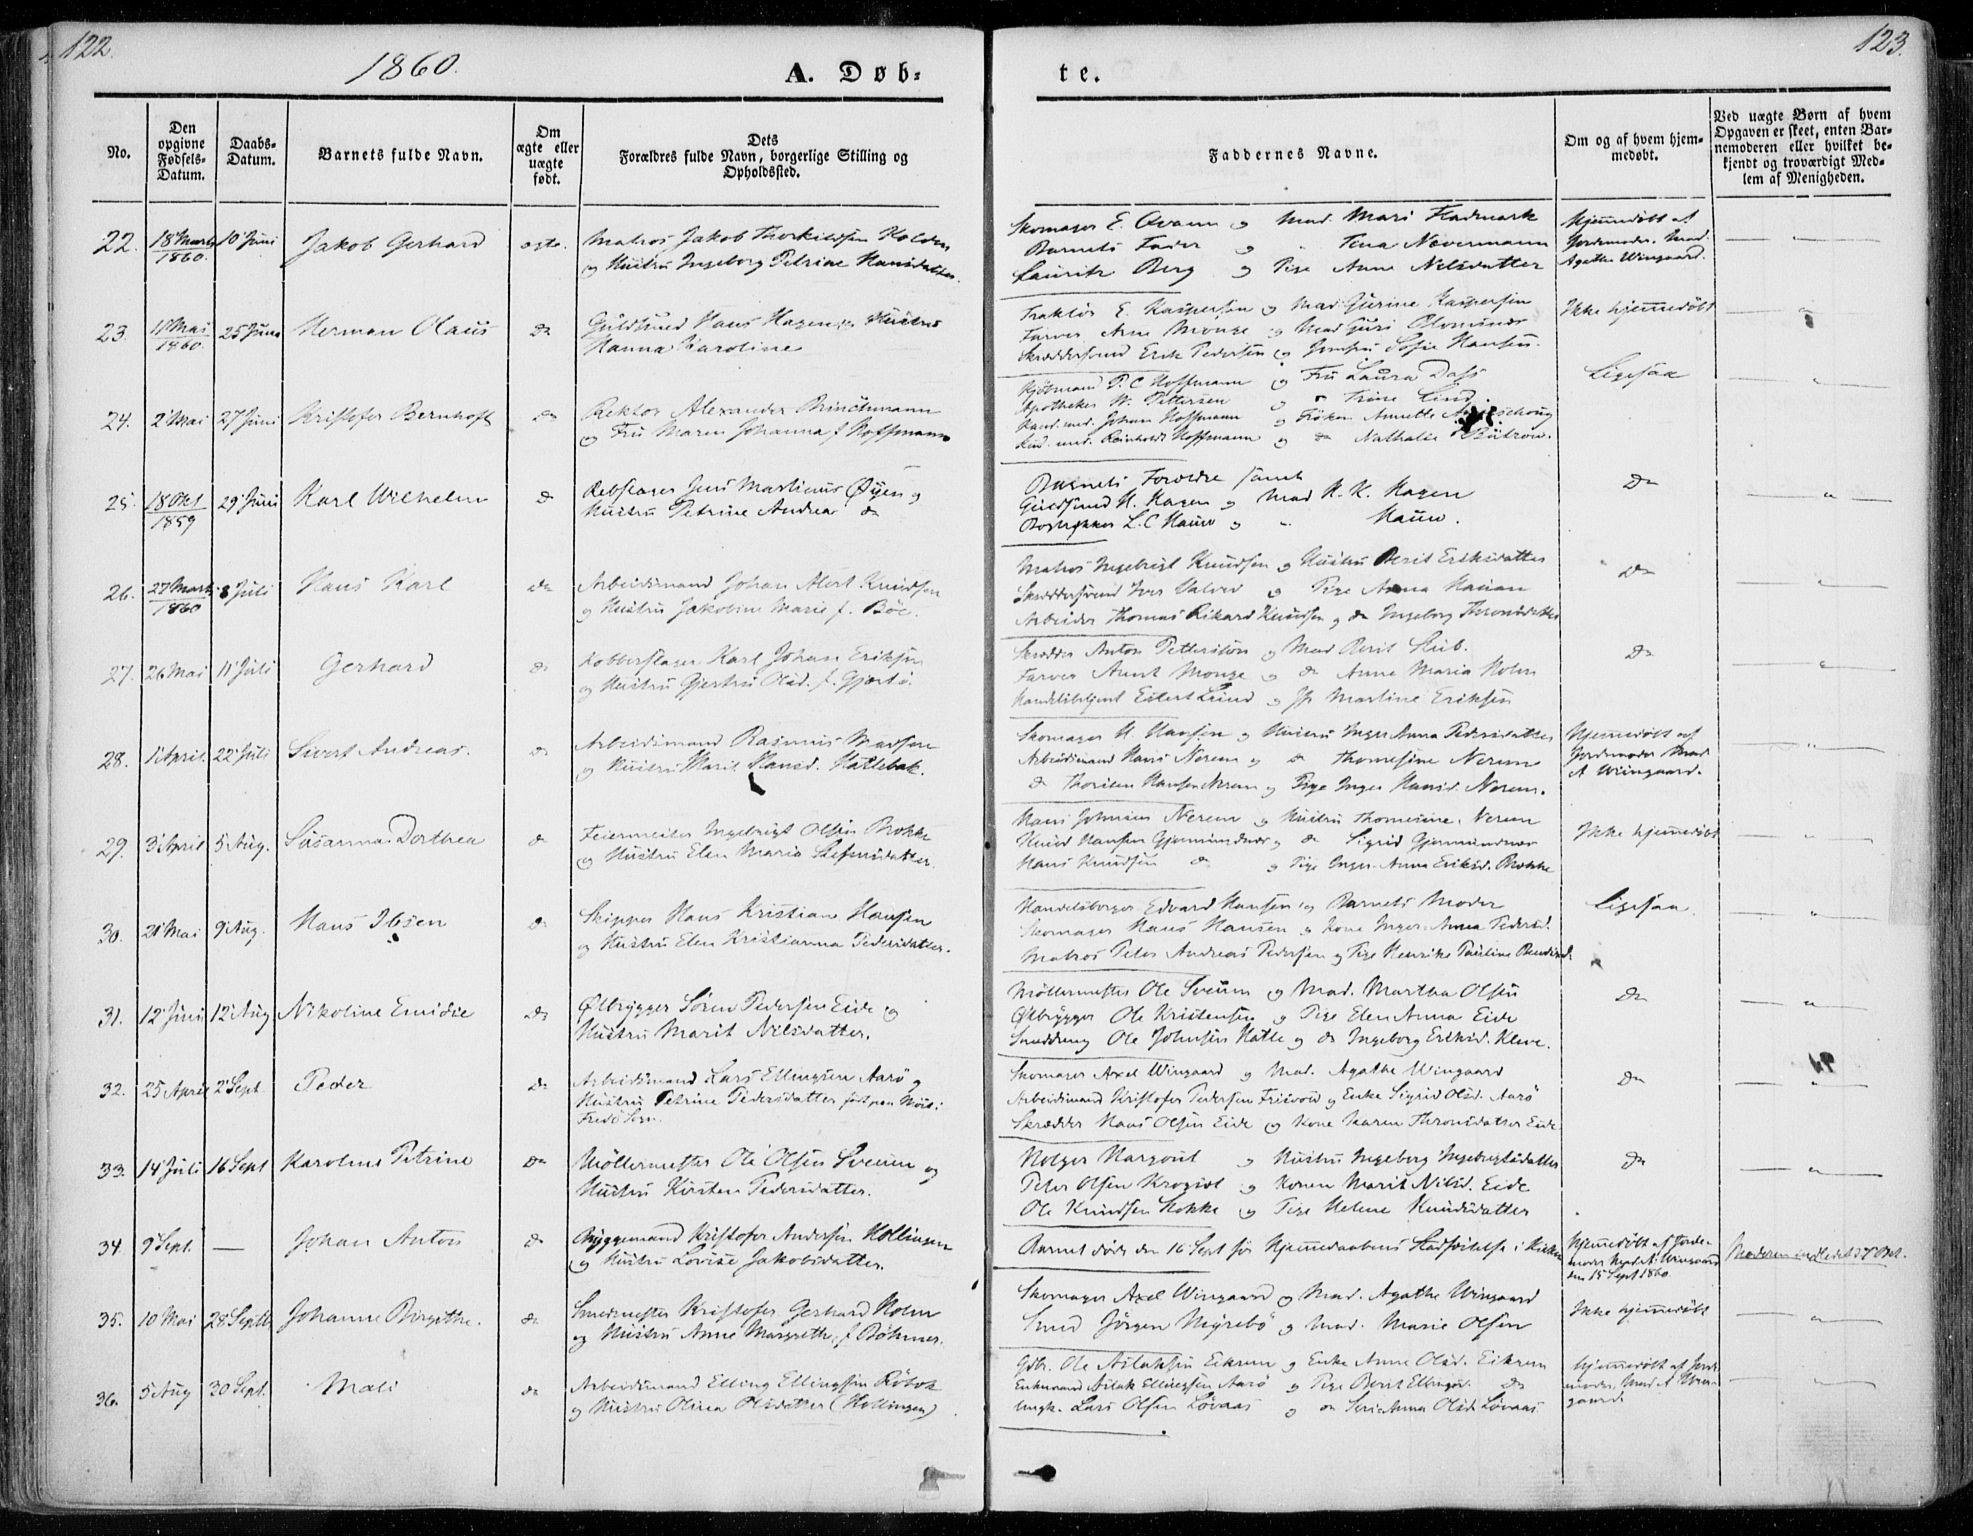 122.
1860.
A. Døb-
te.
123.
No.
Den opgivne Fødsels-Datum.
Daabs-Datum.
Barnets fulde Navn.
Om ægte eller uægte født.
Dets Forældres fulde Navn, borgerlige Stilling og Opholdssted.
Faddernes Navne.
Om og af hvem hjemmedøbt.
Ved uægte Børn af hvem Opgaven er skeet, enten Barnemoderen eller hvilket bekjendt og troværdigt Medlem af Menigheden.
22. 18 Marts 1860. 10 Juni Jakob Gerhard ægte.
Matros Jakob Thorkildsen Holden
og Hustru Ingeborg Petrine Hansdatter.
Skomager E. Qvam og Mad. Mari Hadmark
Barnets Fader og " Tena Nævermann
Lauritz Berg og Pige Anne Nilsdatter
Hjemmedöbt af
Jordemoder Mad.
Agathe Wingaard.
23. 11 Mai 1860. 25 Juni Herman Olaus do
Guldsmed Hans Hagen og Hustru
Hanna Karoline
Traktör E. Kaspersen og Mad Gjerine Kaspersen
Farver Arne Monge og Mad Guri
Skræddersvend Erik Pedersen og Jomfru Sofie Hansen.
Ikke hjemmedöbt
24. 2 Mai 27 Juni Kristofer Bernhoft do
Rektor Alexander Brinchmann
og Fru Maren Johanna f. Hoffmann
Kjöbmand P. C. Hoffmann og Fru Laura Dass
Apotheker N. Pettersen og " Trine Lind.
Kand. med. Johan Hoffmann og Fröken Annette
Kand. med. Reinholdt Hoffmann og do Nathalie Bülrow.
Ligesaa
25. 18 Okt 1859 29 Juni Karl Wilhelm do
Rebslager Jens Martinus Øyen og
Hustru Petrine Andrea do
Barnets Forældre samt
Guldsmed H. Hagen og Mad K. K. Hagen
L. C. Hauw og " Hauw.
Do
26. 27 Marts 1860 8 Juli Hans Karl do
Arbeidsmand Johan Albert Knudsen
og Hustru Jakobine Marie f. Böe.
Matros Ingebrigt Knudsen og Hustru Berit Eriksdatter
Skræddersvend Iver og Pige Anna
Arbeider Thomas Rikard Knudsen og do Ingeborg Thronsdatter
Do
27. 26 Mai 11 Juli Gerhard do
Kobberslager Karl Johan Eriksen
og Hustru Gjertru Olsd. f.
Skrædder Anton Petterson og Mad Berit Stub.
Farver Arnt Monge og do Anne Maria Holm
Eilert Lund og Jfr Martine Eriksen
Do
28. 1 April. 22 Juli Sivert Andreas. do
Arbeidsmand Rasmus Madsen
og Hustru Marit Hansd. Hatlebak.
Skomager H. Hansen og Hustru Inger Anna Pedersdatter
Arbeidsmand Hans Nerem og do Thomesine Nerem
do Thorsten Hansen Nerem og Pige Inger Hansd. Nerem.
Hjemmedöbt af
Jordemoder Mad
A Wiingaard.
29. 3 April 5 Aug. Susanna Dorthea do
Feiermester Ingebrigt Olsen Brokke
og Hustru Elen Maria
Hans Johnsen Nerem og Hustru Thomesine Nerem
Knud Hansen Gjermundnæs og do Sigrid Gjermundnæs
Hans Knudsen do og Pige Inger Anna Eriksd. Brokke
Ikke hjemmedöbt
30. 21 Mai 9 Aug. Hans Ibsen do
Skipper Hans Kristian Hansen
og Hustru Elen Kristianna Pedersdatter.
Handelsborger Edvard Hansen og Barnets Moder
Skomager Hans Hansen og Kone Inger Anna Pedersd.
Matros Peter Andreas Pedersen og Pige Henrike Pauline
Ligesaa
31. 12 Juni 12 Aug Nikoline Emidie do
Ølbrygger Sören Pedersen Eide og
Hustru Marit Nilsdatter.
Möllermester Ole Sveum og Mad. Martha Olsen
Ølbrygger Ole Kristensen og Pige Elen Anna Eide
Ole Johnsen Hatle og do Ingeborg Eriksd. Kleve.
Do
32. 25 April 2 Sept Peder do
Arbeidsmand Lars Ellingsen Aarö og
Hustru Petrine Pedersdatter
Skomager Axel Wingaard og Mad. Agathe Wingaard
Arbeidsmand Kristofer Pedersen og Enke Sigrid Olsd. Aarö
Skrædder Hans Olsen Eide og Kone Karen Thronsdatter Eide
Do
33. 14 Juli 16 Sept Karoline Petrine Do
Möllermester Ole Olsen Sveum og
Hustru Kirsten Pedersdatter.
Holger Hargout og Hustru Ingeborg Ingebrigtsdatter
Peter Olsen og Konen Marit Nilsd. Eide
Ole Knudsen Hokke og Pige Helene Knudsdatter
Do
34. 9 Sept. — Johan Anton do
Byggemand Kristofer Andersen Hollingen
og Hustru Lovise Jakobsdatter.
Barnet döde den 16 Sept för Hjemmedaabens Stadfæstelse i Kirken
Hjemmedöbt af Jorde-
moder Mad. A. Wingaard
den 15 Sept 1860
Moderen indledet 27 Okt.
35. 10 Mai 28 Septb. Johanne Birgithe. do
Smedmester Kristofer Gerhard Holm
og Hustru Anne Margrethe f. Böhmer.
Skomager Axel Wingaard og Mad. Agathe Wingaard
Smed Jörgen Myrebö og Mad. Marie Olsen
Ikke hjemmedöbt
36. 5 Aug 30 Sept. Mali do
Arbeidsmand Elling Ellingsen Röbek
og Hustru Olina Olsdatter (Hollingen)
Gdbr. Ole Aslaksen Eikrem og Enke Anne Olsd. Eikrem
Enkemand Aslak Ellingsen Aarö og Pige Berit Ellingsd. do
Ungk. Lars Olsen Lövaas og do Seri Anna Olsd. Lövaas
Hjemmedöbt af Jorde-
moder Mad A Win-
gaard